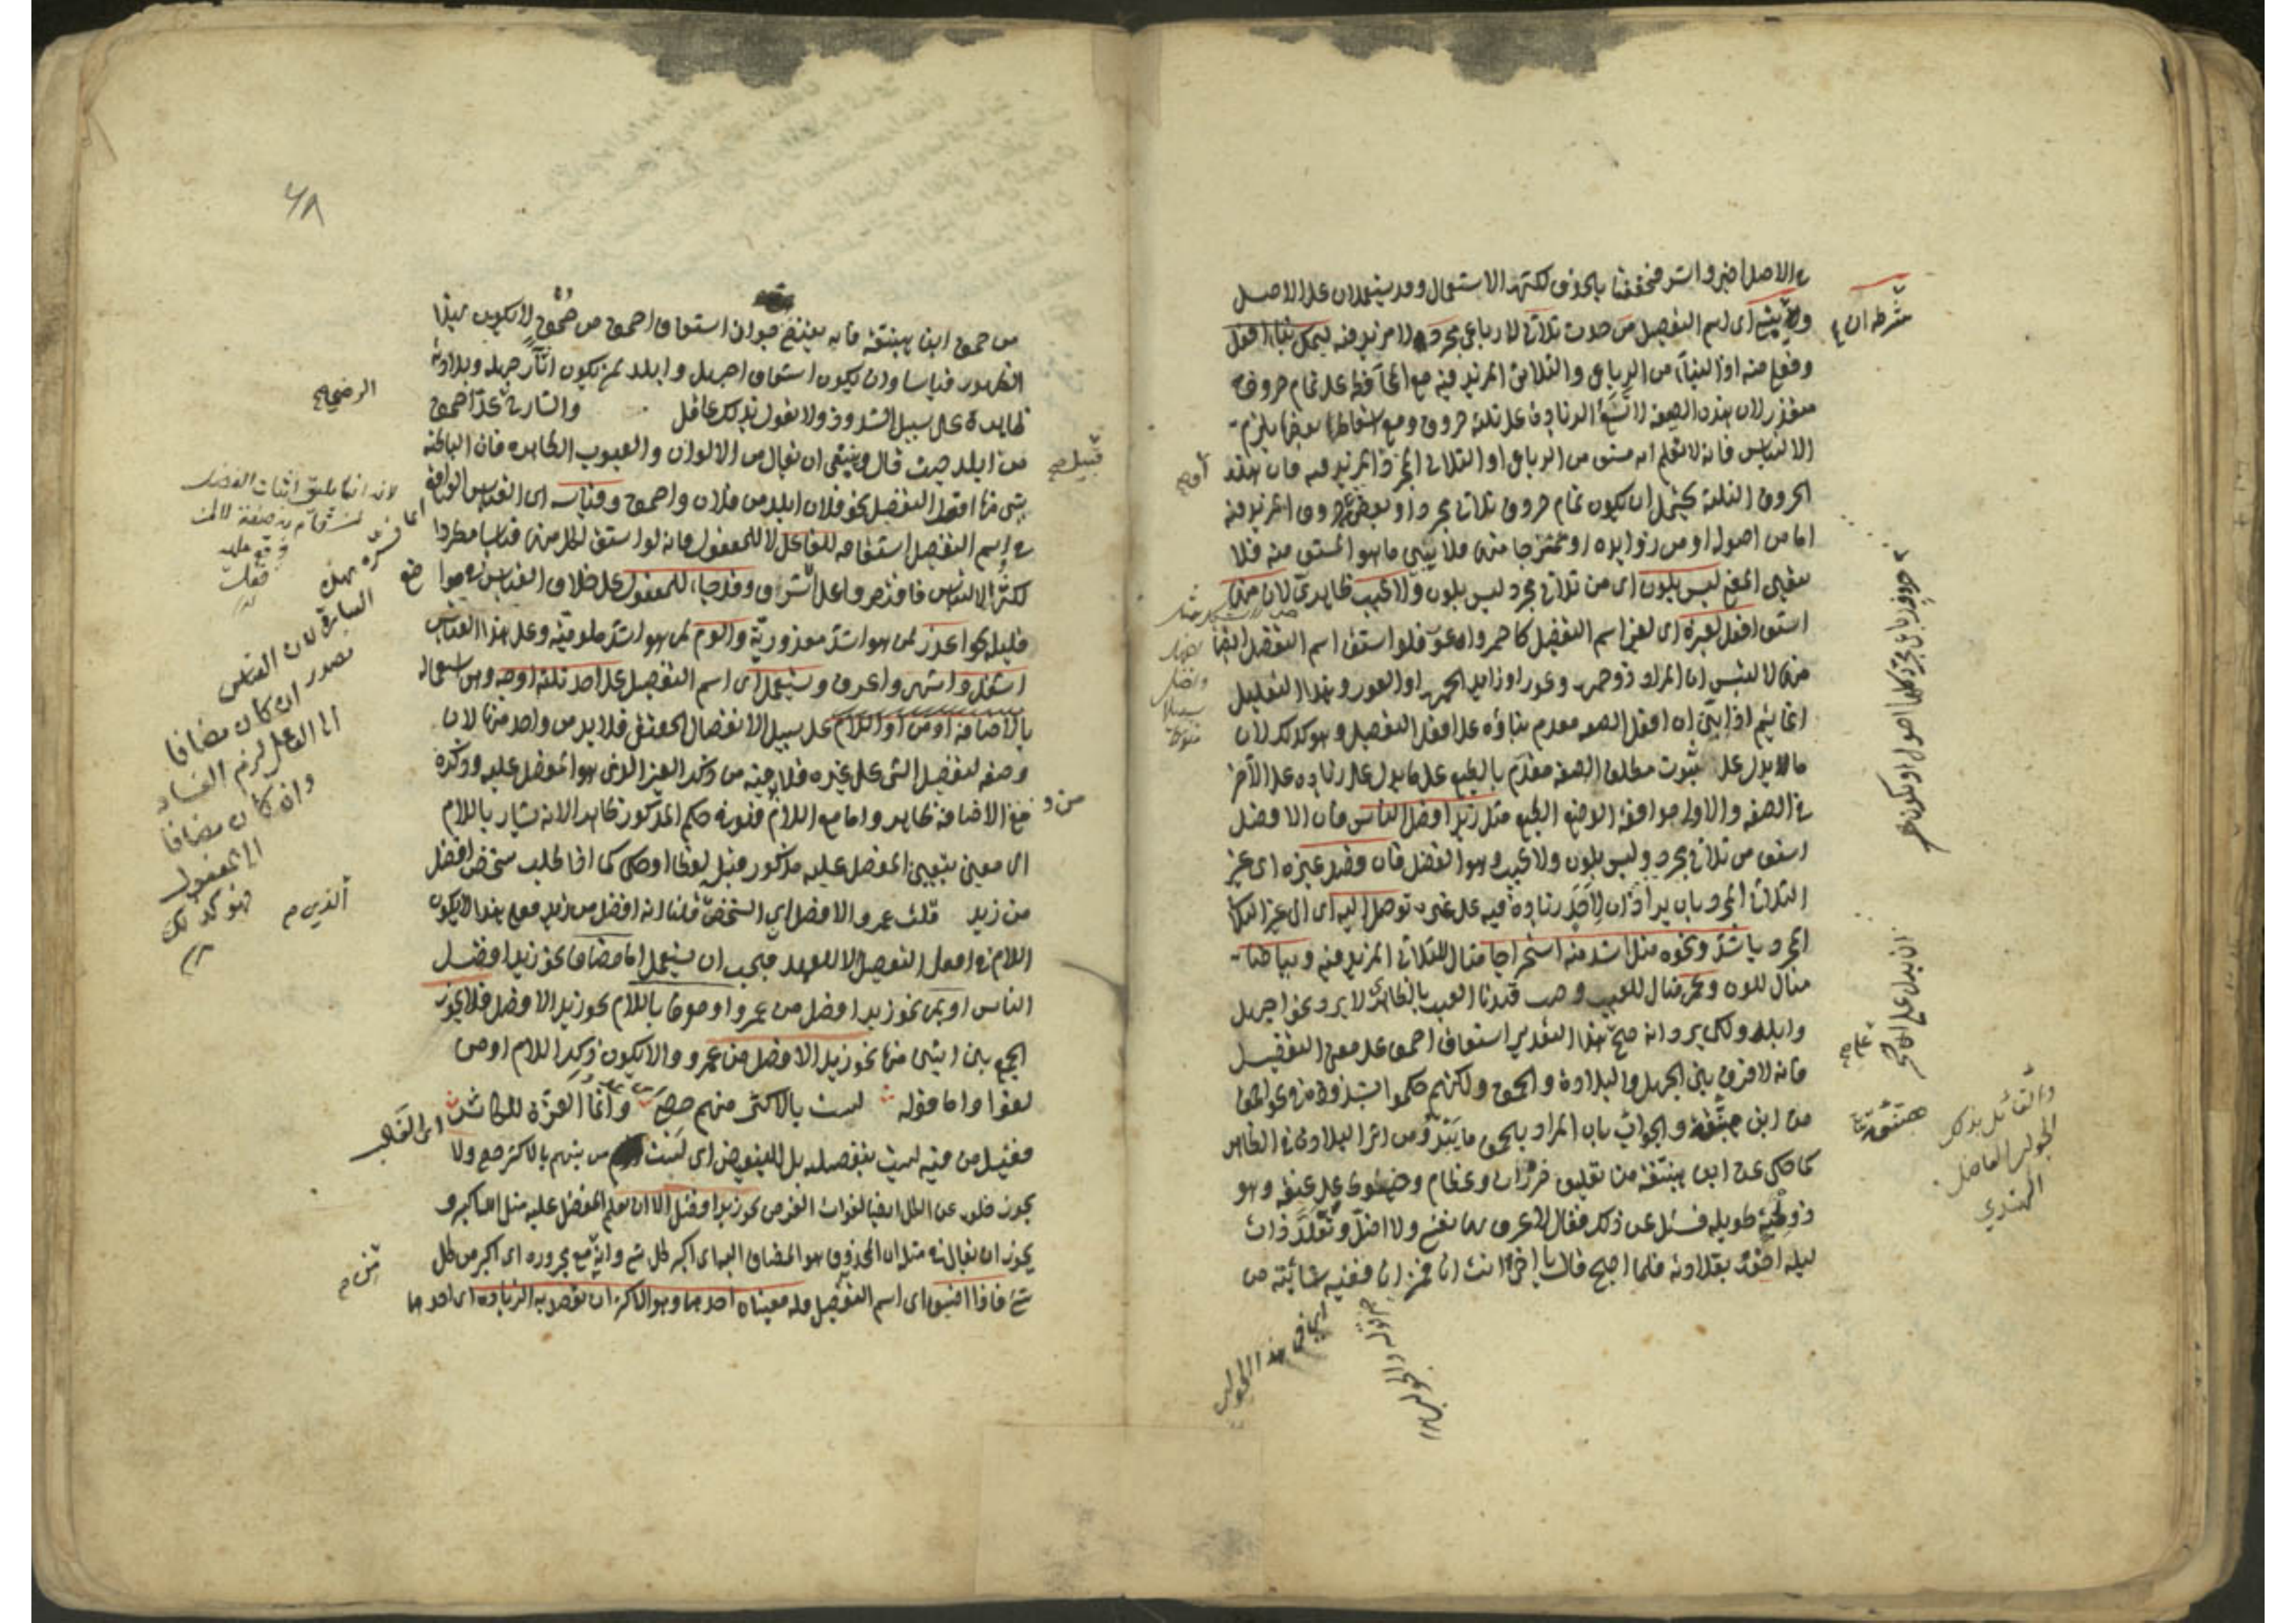 في الاصل اخير واشر فخففتا بالحذف لكثرة الاستعمال وقد يستعملان على الاصل
شرطه ان
اي اسم التفضيل من حدث ثلاثي لا رباعي مجرد ولا مزيد فيه ليمكن بناء افعل
وفعلى منه اذ البناء من الرباعي والثلاثي المزيد فيه مع المحافظة على تمام حروفه
متعذر لان هذه الصيغة لا تسع الزيادة على ثلثة حروف ومع اسقاط بعضها يلزم
الالتباس فانه لا يعلم انه مشتق من الرباعي او الثلاثي المجرد او المزيد فيه فان هذه
الحروف الثلثة يحتمل ان يكون تمام حروف ثلاثي مجرد او بعض حروف المزيد فيه
اما من اصوله او من زوايده او ممتزجا منهما فلا يتبين ما هو المشتق منه فلا
يتعين المعنى ليس بلون اي من ثلاثي مجرد ليس بلون ولا عيب ظاهري لان منهما
اشتق افعل لغيره اي لغير اسم التفضيل كاحمر واعور فلو اشتق اسم التفضيل ايضا
منهما لالتبس ان المراد ذو حمرة وعور او زايد الحمرة او العور وهذا التعليل
انما يتم اذا تبين ان افعل الصفة مقدم بناؤه على افعل التفضيل وهو كذلك لان
ما يدل على ثبوت مطلق الصفة مقدم بالطبع على ما يدل على زيادة على الآخر
في الصفة والاولى موافقة الوضع الطبع مثل زيد افضل الناس فان الافضل
اشتق من ثلاثي مجرد وليس بلون ولا عيب وهو الفضل فان قصد غيره اي غير
الثلاثي المجرد بان يراد ان لاحد زيادة فيه على غيره توصل اليه اي الى غير الثلاثي
المجرد باشد ونحوه مثل اشد منه استخراجا مثال للثلاثي المزيد فيه وبياضا
مثال للون وعمى مثال للعيب وحيث قيدنا العيب بالظاهري لا يرد نحو اجهل
وابلد ولكن يرد انه صح هذا التقدير اشتقاق احمق على معنى التفضيل
فانه لا فرق بين الجهل والبلادة والحمق ولكنهم حكموا بشذوذه في نحو احمق
من ابن هبنقة والجواب بان المراد بالحمق ما يبدو من اثر البلادة في الظاهر
كما حكي عن ابن هبنقة من تعليق خرزات وعظام وخيوط على عنقه وهو
ذو لحية طويلة فسئل عن ذلك فقال لاعرف بها نفسي ولا اضل وتقلد ذات
ليلة اخوه بقلادته فلما اصبح قال يا اخي انت انا فمن انا ففيه شائبة من
هبنقة
والقائل بذلك
الجواب الفاضل
الهندي
اي في هذا الجواب
من حمق ابن هبنقة فانه يقتضي جواز اشتقاق احمق من حمق لا يكون بهذا
الظهور قياسا وان يكون اشتقاق اجهل وابلد لمن يكون آثار جهله وبلادته
ظاهرة على سبيل الشذوذ ولا يقول بذلك عاقل والشارح عد احمق
الرضي
من ابلد حيث قال وينبغي ان يقال من الالوان والعيوب الظاهرة فان الباطنة
يبنى منها افعل التفضيل نحو فلان ابلد من فلان واحمق وقياسه اي القياس الواقع
في اسم التفضيل اشتقاقه للفاعل لا للمفعول فانه لو اشتق لكل منهما قياسا مطردا
لكثر الالتباس فاقتصروا على الاشرف وقد جاء للمفعول على خلاف القياس في مواضع
قليلة نحو اعذر لمن هو اشد معذورية والوم لمن هو اشد ملومية وعلى هذا القياس
اشغل واشهر واعرف ويستعمل اي اسم التفضيل على احد ثلثة اوجه وهي استعماله
بالاضافة او من او اللام على سبيل الانفصال الحقيقي فلا بد من واحد منها لان
وضعه لتفضيل الشيء على غيره فلا بد فيه من ذكر الغير الذي هو المفضل عليه وذكره
مع الاضافة ظاهر واما مع اللام فهو في حكم المذكور ظاهرا لانه يشار باللام
الى معين بتعيين المفضل عليه مذكور قبل لفظا او حكما كما اذا طلب شخص افضل
من زيد قلت عمرو الافضل اي الشخص الذي قلنا انه افضل من زيد فعلى هذا لا يكون
اللام في افعل التفضيل الا للعهد فيجب ان يستعمل اما مضافا نحو زيد افضل
الناس او بمن نحو زيد افضل من عمرو او معرفا باللام نحو زيد الافضل فلا يجوز
الجمع بين اثنين منها نحو زيد الافضل من عمرو والا يكون ذكر اللام او من
لغوا واما قوله ولست بالاكثر منهم حصى وانما العزة للكاثر
اي الغالب
فقيل من فيه ليست تفضيلية بل للتبعيض اي لست من بينهم بالاكثر حصى ولا
يجوز خلوه عن الكل ايضا لفوات الغرض نحو زيد افضل الا ان يعلم المفضل عليه مثل الله اكبر و
يجوز ان يقال في مثله ان المحذوف هو المضاف اليه اي اكبر كل شيء وانه مع مجروره اي اكبر من كل
شيء فاذا اضيف اي اسم التفضيل فله معنيان احدهما وهو الاكثر ان تقصد به الزيادة اي احدهما
السابق لان القياس
مصدر ان كان مضافا
الى الفاعل لزم الفساد
وان كان مضافا
الى المفعول
فهو كذلك